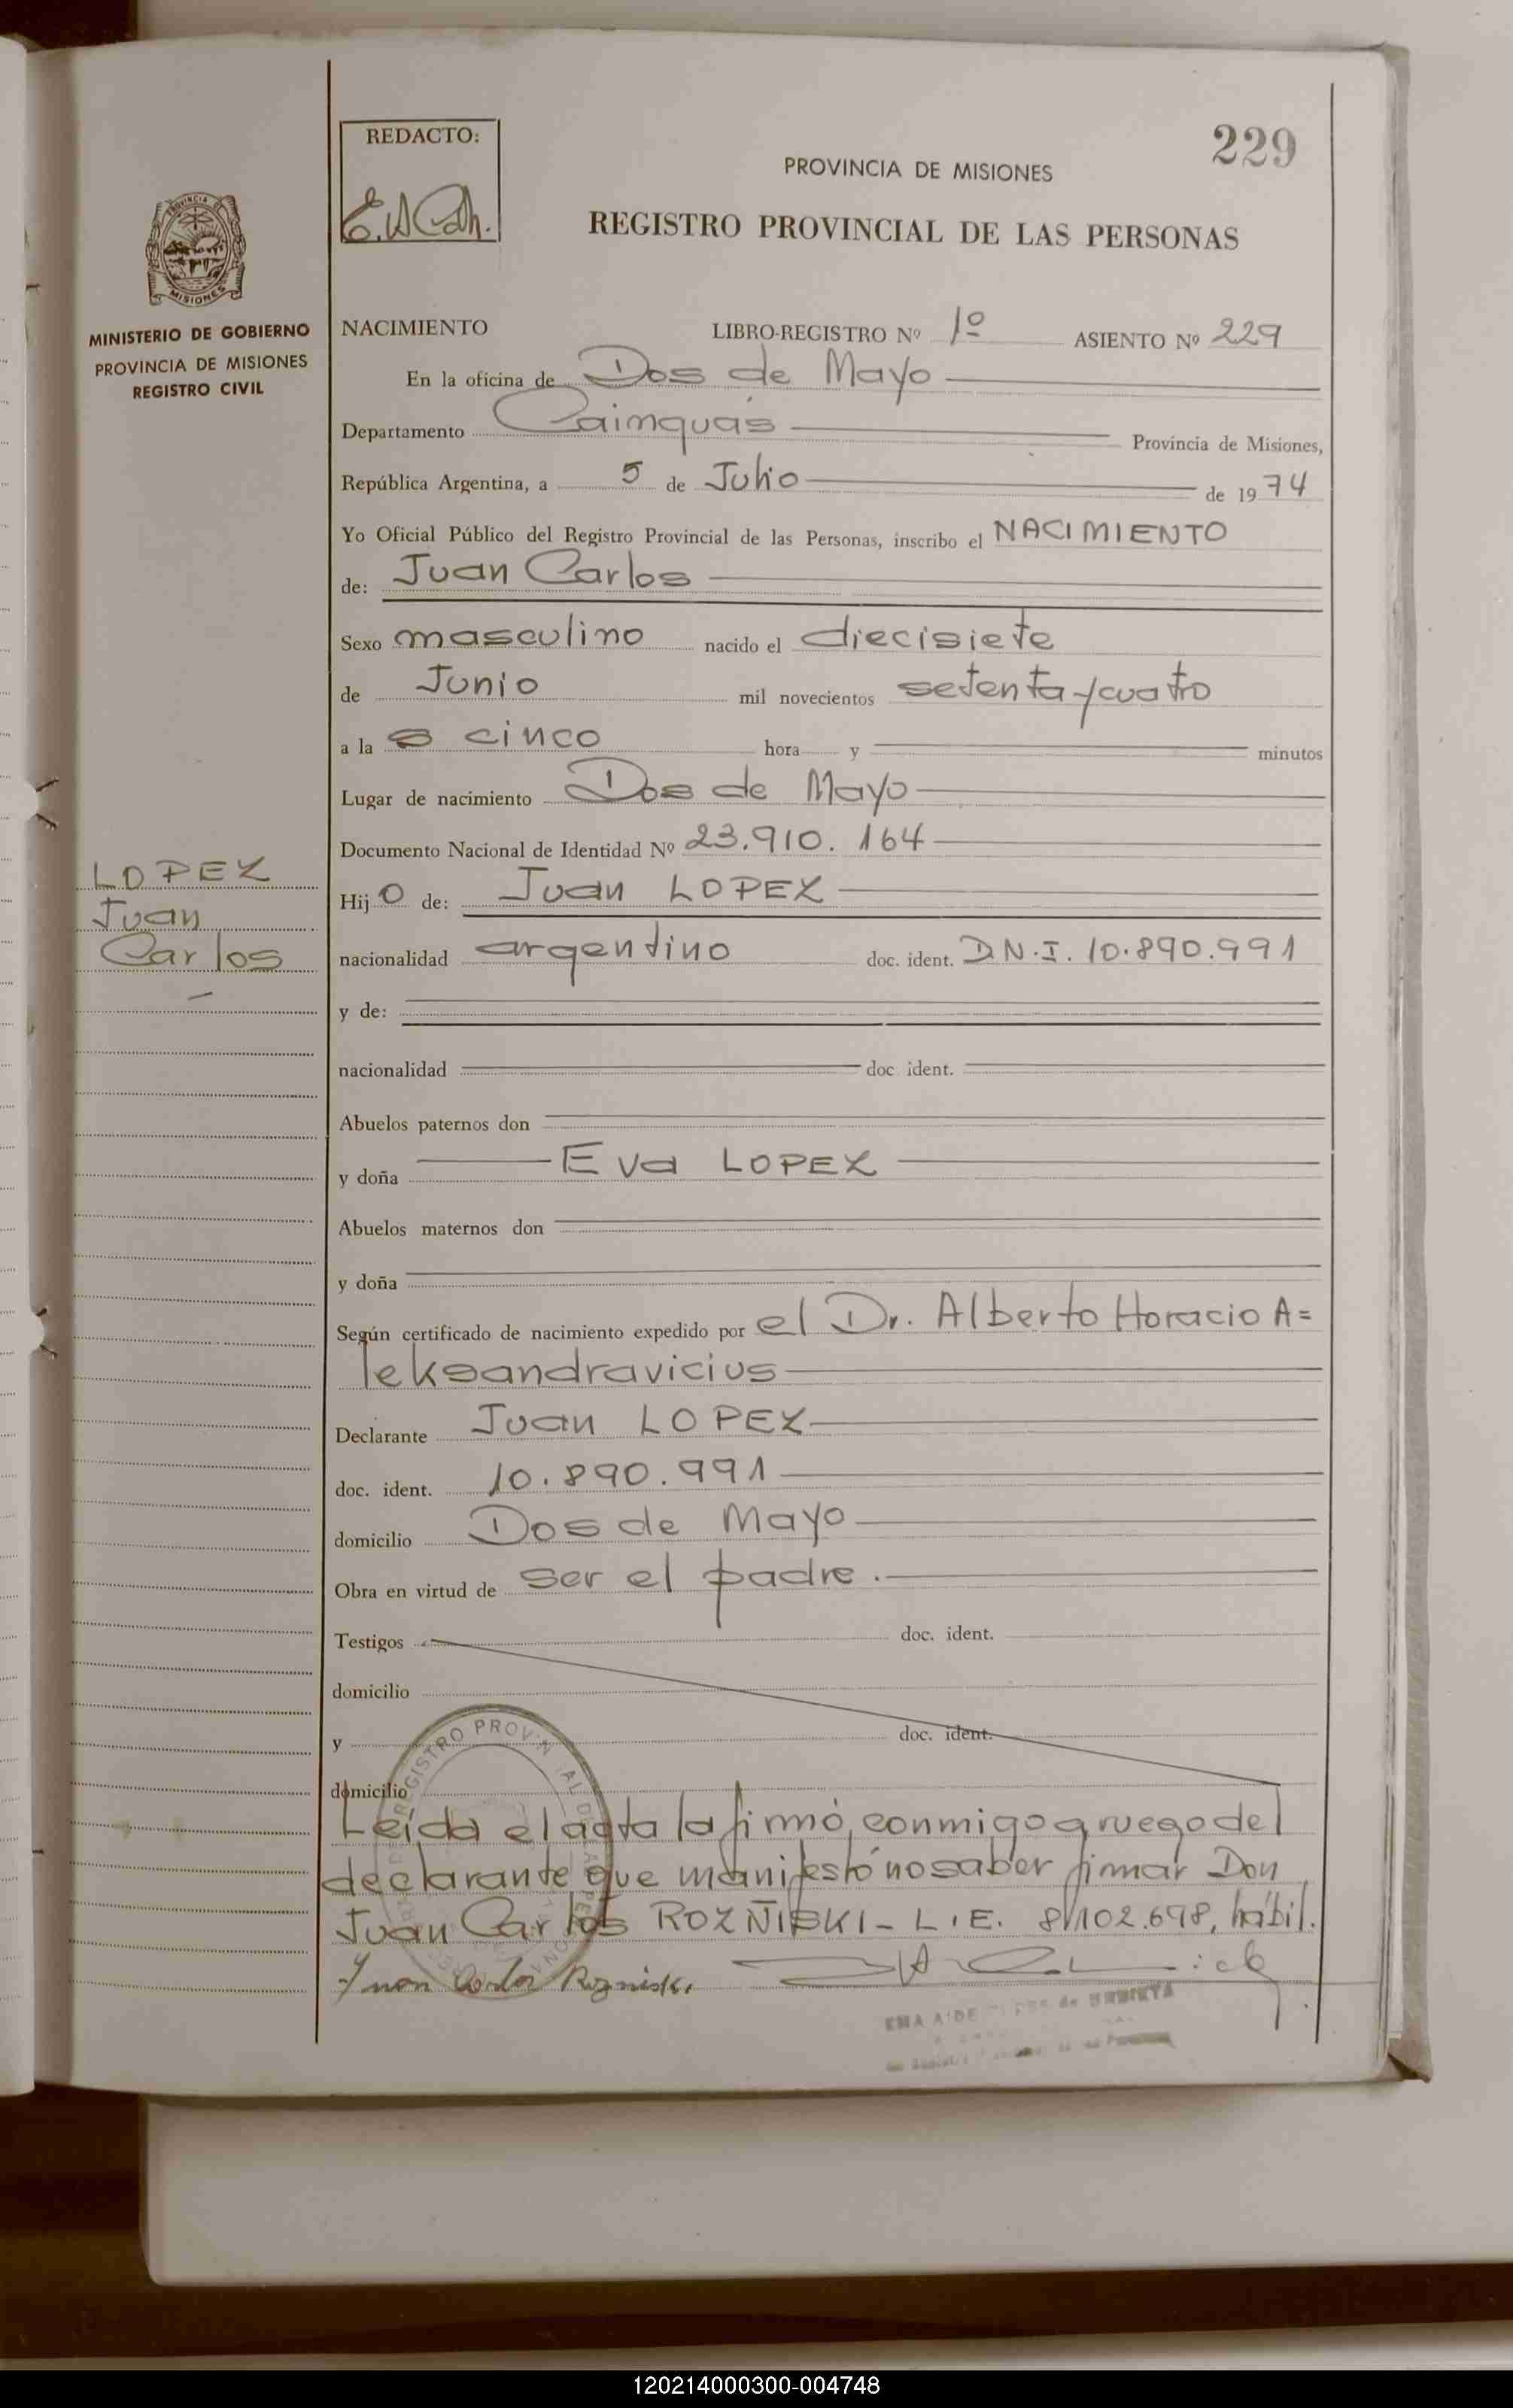 229
REDACTO:
PROVINCIA DE MISIONES
REGISTRO PROVINCIAL DE LAS PERSONAS
MISIONES
MINISTERIO DE GOBIERNO
PROVINCIA DE MISIONES
REGISTRO CIVIL
NACIMIENTO LIBRO-REGISTRO Nº 1º ASIENTO Nº 229
En la oficina de Dos de Mayo
Departamento Cainguás Provincia de Misiones,
República Argentina, a 5 de Julio de 1974
Yo Oficial Público del Registro Provincial de las Personas, inscribo el NACIMIENTO
de: Juan Carlos
Sexo masculino nacido el diecisiete
de Junio mil novecientos setenta y cuatro
a la s cinco hora y minutos
Lugar de nacimiento Dos de Mayo
Documento Nacional de Identidad Nº 23.910.164
LOPEZ
Juan
Carlos
Hijo de: Juan LOPEZ
nacionalidad argentino doc. ident. D.N.I. 10.890.991
y de:
nacionalidad doc ident.
Abuelos paternos don
y doña Eva LOPEZ
Abuelos maternos don
y doña
Según certificado de nacimiento expedido por el Dr. Alberto Horacio A=
leksandravicius
Declarante Juan LOPEZ
doc. ident. 10.890.991
domicilio Dos de Mayo
Obra en virtud de ser el padre.
Testigos doc. ident.
domicilio
y doc. ident.
domicilio
Leída el acta la firmó, conmigo a ruego del
declarante que manifestó no saber firmar Don
Juan Carlos ROZÑISKI - L.E. 8.102.698, hábil.
Juan Carlos Rozniski
120214000300-004748